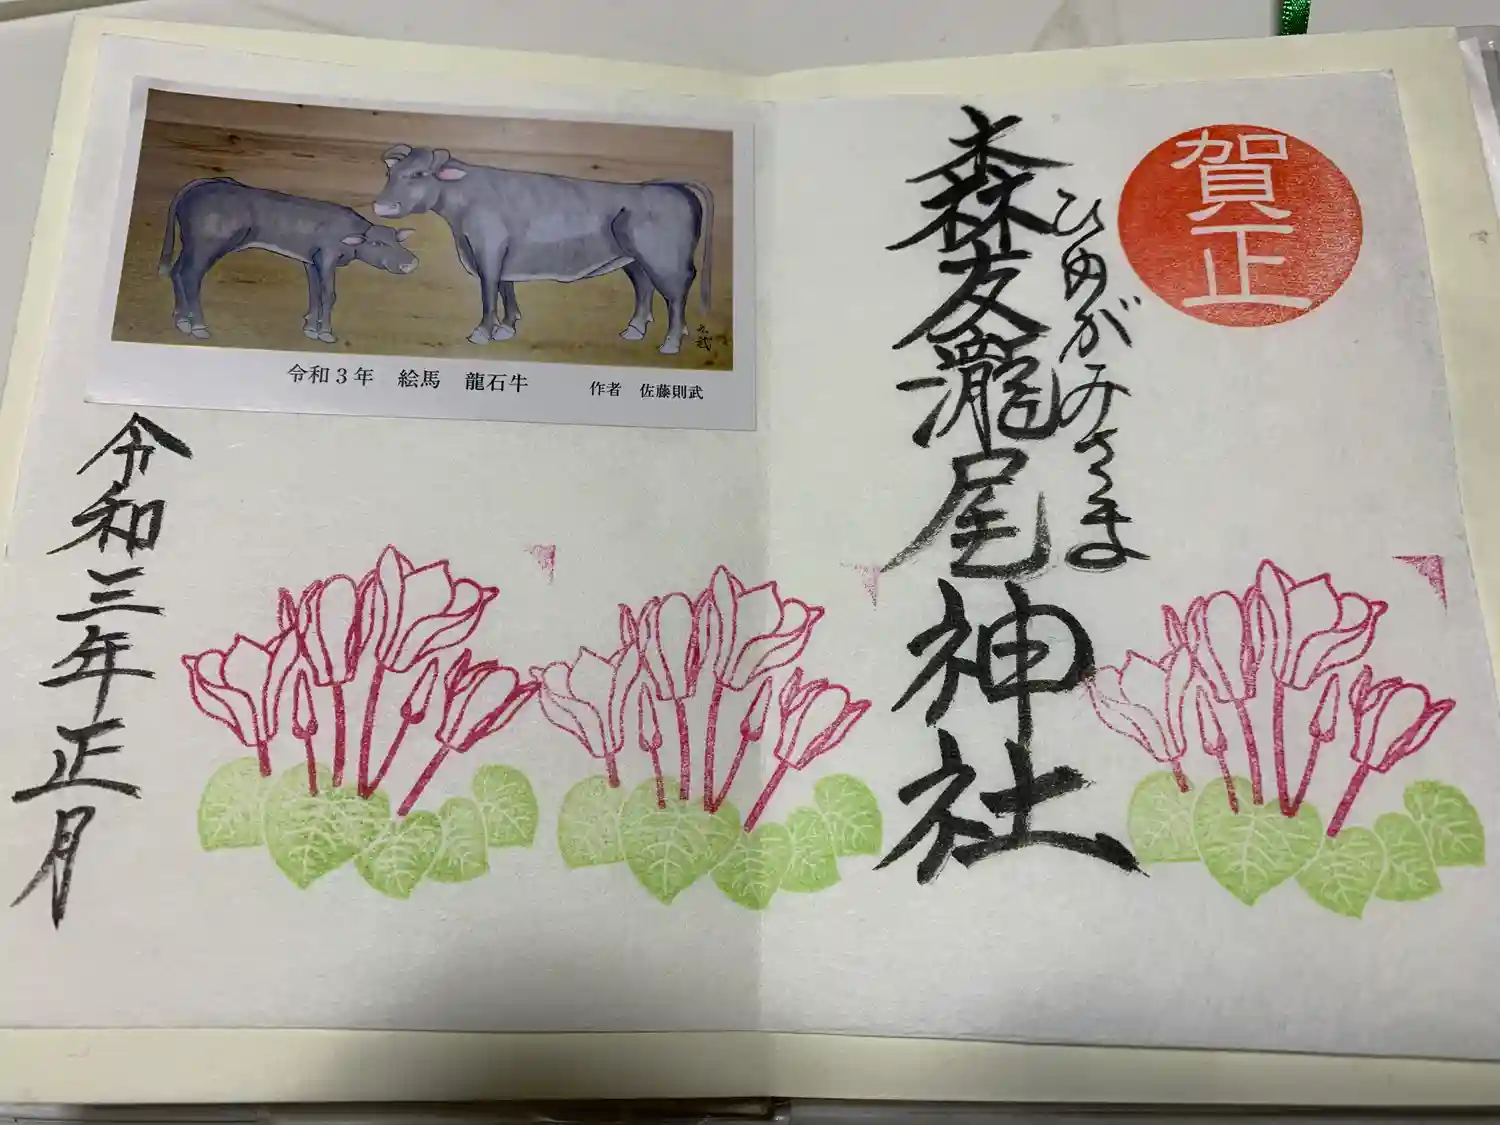 賀正
ひめがみさま
森友瀧尾神社
令和3年 絵馬 龍石牛 作者 佐藤則武
令和三年正月